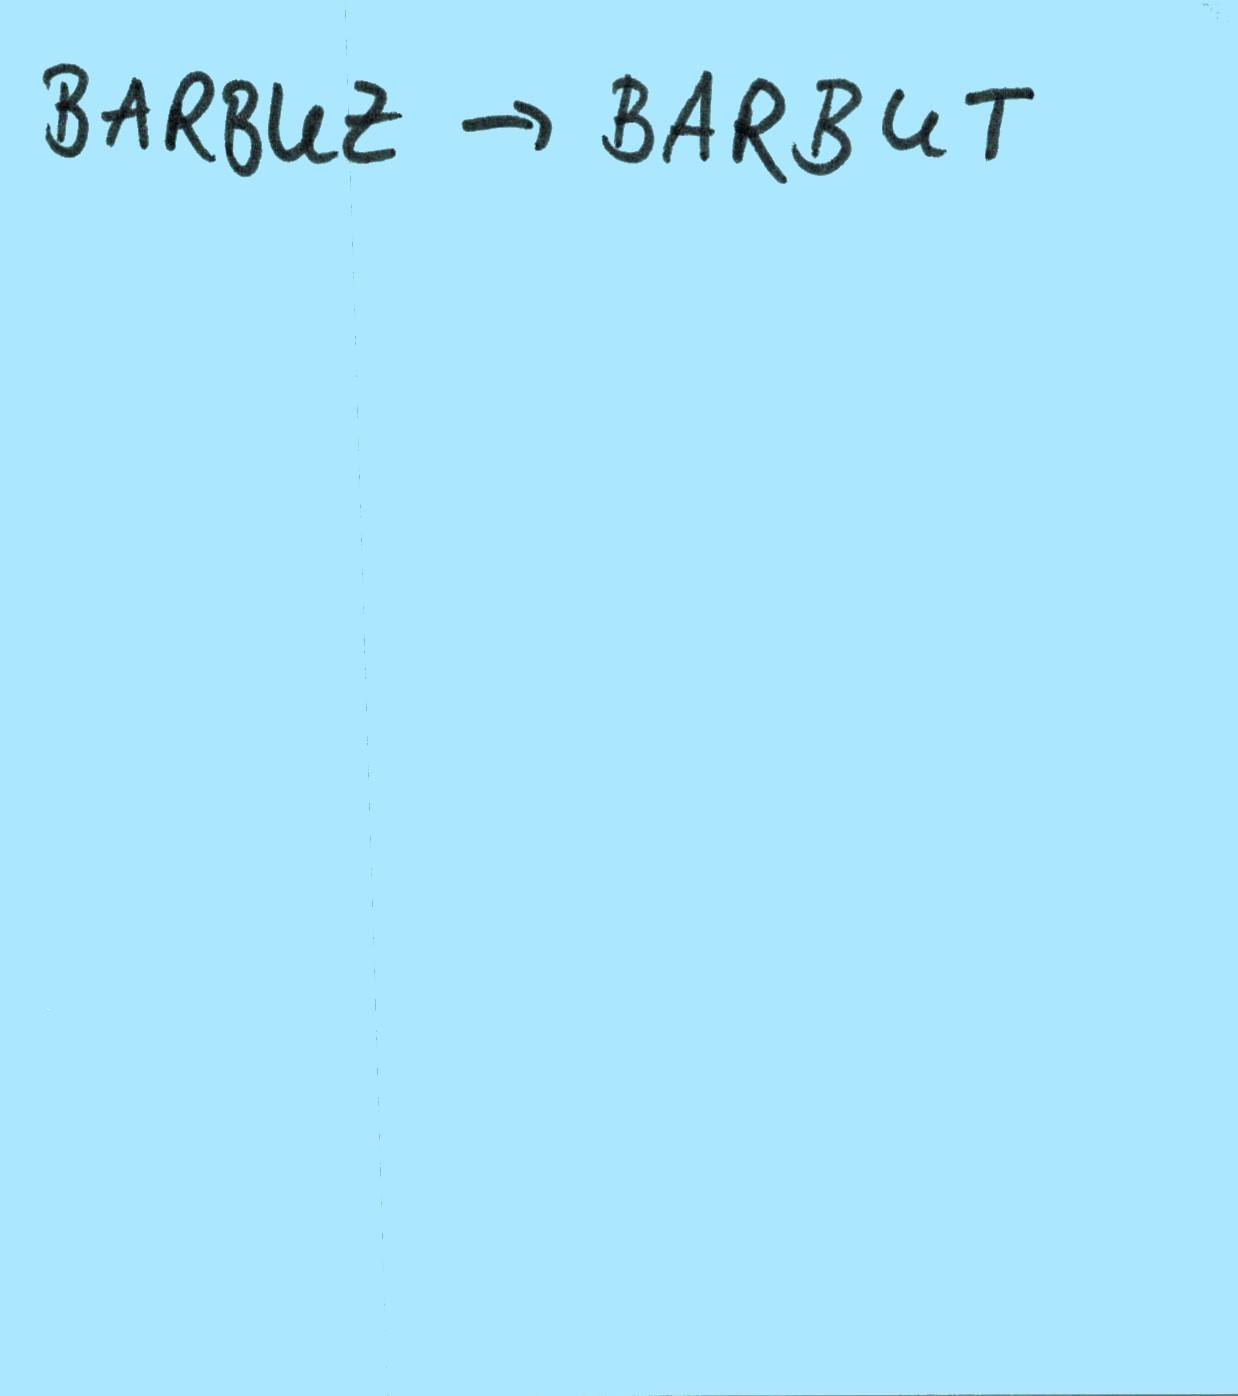 BARBUZ → BARBUT